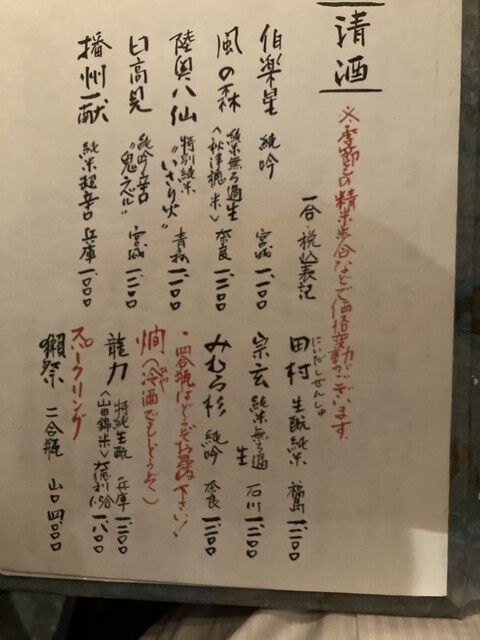 清酒
※季節の精米歩合などで価格変動がございます。
一合・税込表記
伯楽星 純吟 宮城 一、一〇〇
風の森 純米無ろ過生
〈秋津穂米〉 奈良 一、二〇〇
陸奥八仙 特別純米
"いさり火" 青森 一、一〇〇
日高見 純吟辛口
"鬼ころし" 宮城 一、二〇〇
播州一献 純米超辛口 兵庫 一、一〇〇
にいだしぜんしゅ
田村 生酛純米 福島 一、二〇〇
宗玄 純米無ろ過
生 石川 一、二〇〇
みむろ杉 純吟 奈良 一、二〇〇
・四合瓶はどうぞお尋ね下さい!
燗(冷酒でもどうぞ)
龍力 特純生酛 兵庫 一、二〇〇
〈山田錦米〉 大徳利1.5合 一、八〇〇
スパークリング
獺祭 二合瓶 山口 四、〇〇〇